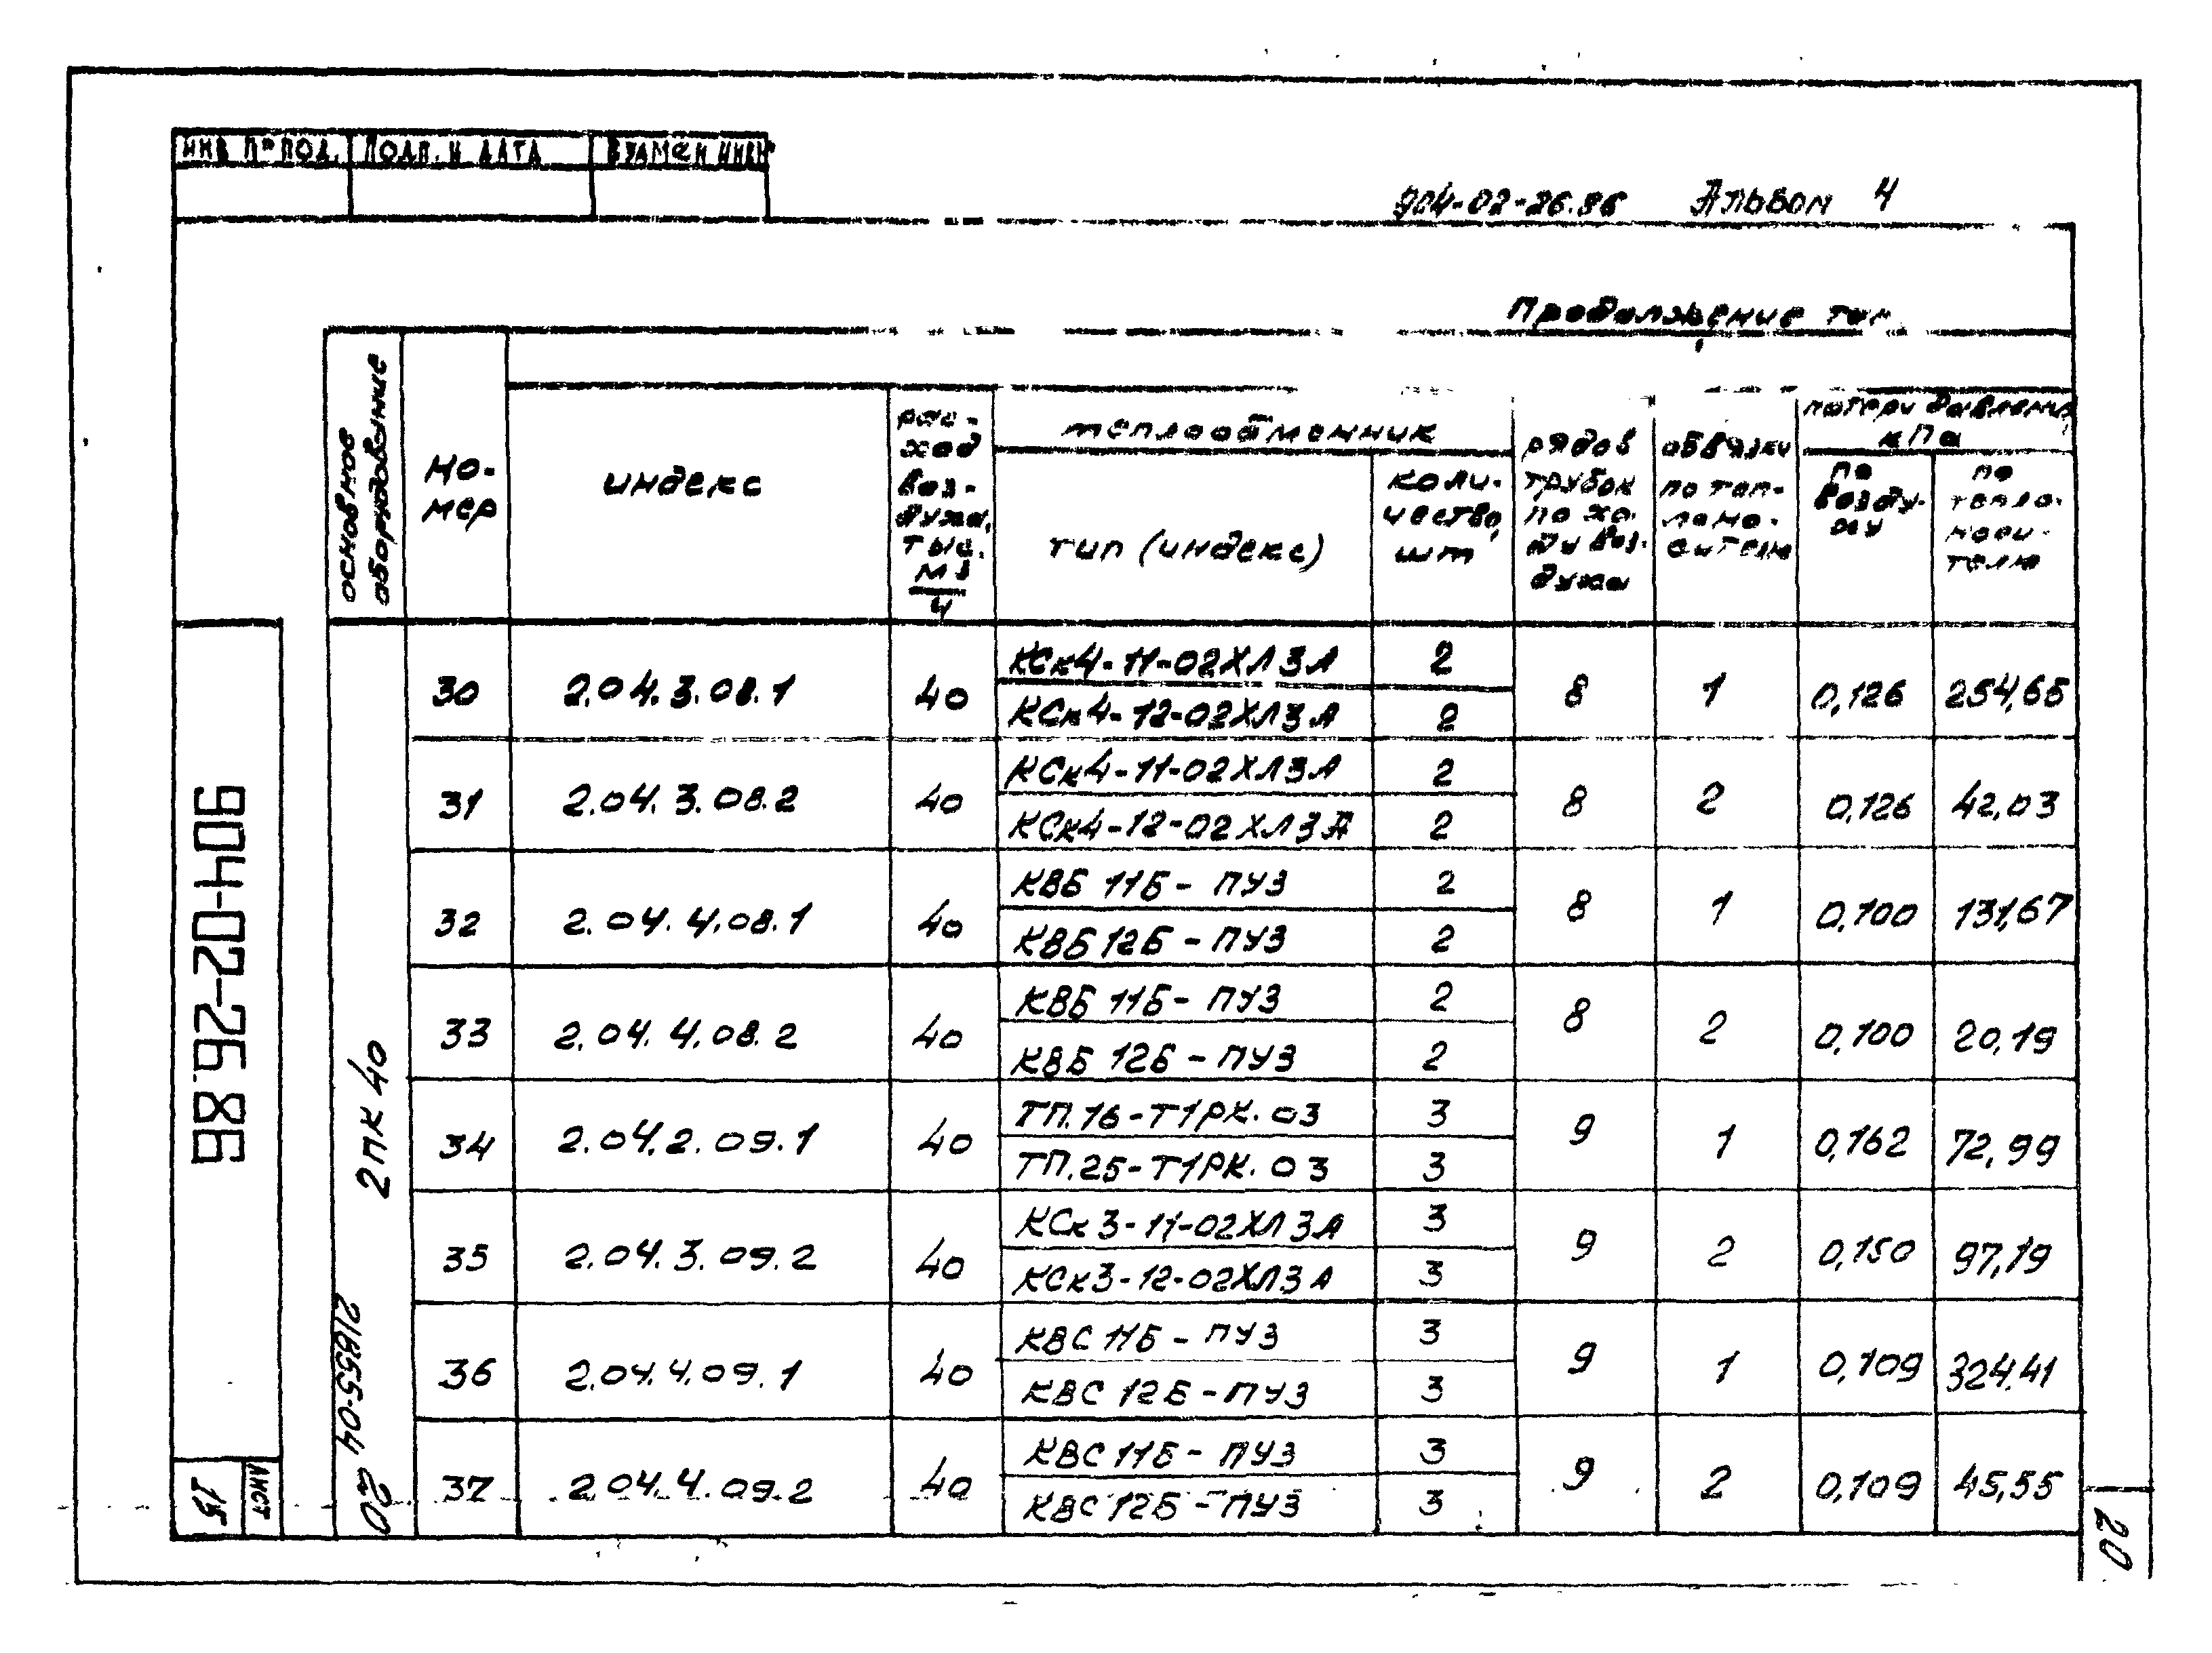 ИНВ № ПОД. ПОДП. И ДАТА ВЗАМЕН ИНВ№
904-02-26.86 Альбом 4
Продолжение
основное
оборудование
но-
мер
индекс
рас-
ход
воз-
духа,
тыс.
м3
ч
теплообменник
тип (индекс)
коли-
чество,
шт
рядов
трубок
по хо-
ду воз-
духа
обвязки
по теп-
лоно-
сителю
потери давления,
кПа
по
возду-
ху
по
тепло-
носи-
телю
30 2.04.3.08.1 40 КСк4-11-02ХЛ3А 2 8 1 0,126 254,65
КСк4-12-02ХЛ3А 2
31 2.04.3.08.2 40 КСк4-11-02ХЛ3А 2 8 2 0,126 42,03
КСк4-12-02ХЛ3А 2
32 2.04.4.08.1 40 КВБ 11Б-ПУ3 2 8 1 0,100 131,67
КВБ 12Б-ПУ3 2
33 2.04.4.08.2 40 КВБ 11Б-ПУ3 2 8 2 0,100 20,19
КВБ 12Б-ПУ3 2
34 2.04.2.09.1 40 ТП.16-Т1РК.03 3 9 1 0,162 72,99
ТП.25-Т1РК.03 3
35 2.04.3.09.2 40 КСк3-11-02ХЛ3А 3 9 2 0,150 97,19
КСк3-12-02ХЛ3А 3
36 2.04.4.09.1 40 КВС 11Б-ПУ3 3 9 1 0,109 324,41
КВС 12Б-ПУ3 3
37 2.04.4.09.2 40 КВС 11Б-ПУ3 3 9 2 0,109 45,55
КВС 12Б-ПУ3 3
2ПК 40
904-02-26.86
21855-04 20
ЛИСТ
15
20